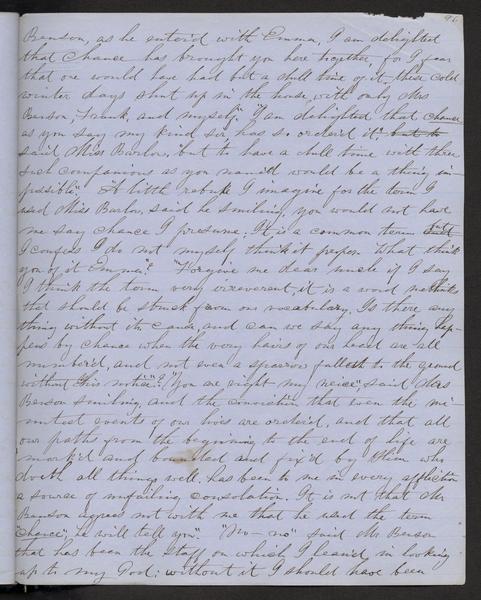 96
Benson, as he enter'd with Emma, I am delighted
that Chance has brought you here together, for I fear
that one would have had but a dull time of it these cold
winter days shut up in the house, with only Mrs
Benson, Frank, and myself." "I am delighted that chance
as you say my kind sir has so order'd it" but to
said Miss Barlow, "but to have a dull time with three
such companions as you nam'd would be a thing im-
possible". "A little rebuke I imagine for the term I
used Miss Barlow, said he smiling, you would not have
me say chance I presume. It is a common term still
I confess I do not myself think it proper. What think
you of it Emma"? "Forgive me dear uncle if I say
I think the term very irreverent, it is a word methinks
that should be struck from our vocabulary. Is there any
thing without its cause, and can we say any thing hap-
pens by chance when the very hairs of our head are all
number'd, and not even a sparrow falleth to the ground
without His notice"? "You are right my neice", said Mrs
Benson smiling, and the conviction that even the mi-
nutest events of our lives are order'd, and that all
our paths from the beginning to the end of life are
mark'd and bounded and fix'd by Him who
doeth all things well, has been to me in every affliction
a source of unfailing consolation. It is not that Mr
Benson agrees not with me that he used the term
"chance", he will tell you". "No—no" said Mr Benson
that has been the staff on which I lean'd in looking
up to my God; without it I should have been